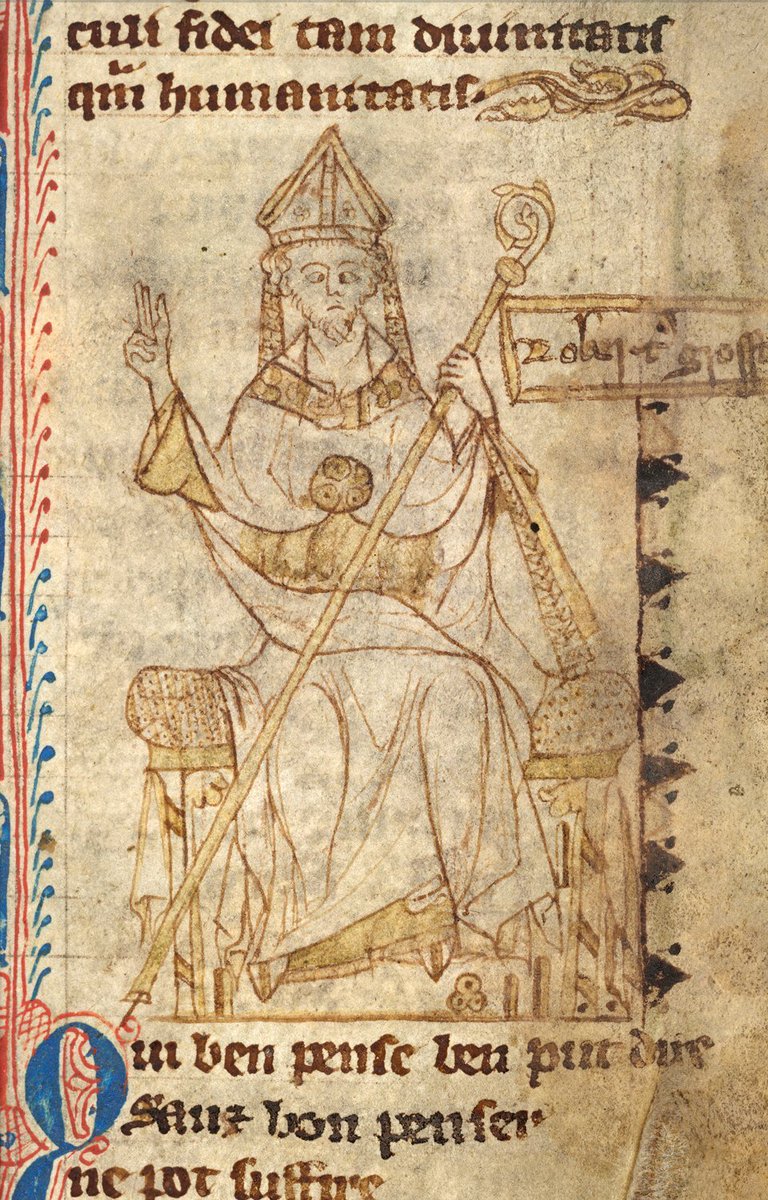 culi fidei tam diuinitatis
qm humanitatis.
Robert grosst
Qui ben pense ben put dire
Sanz bon penser
ne pot suffire